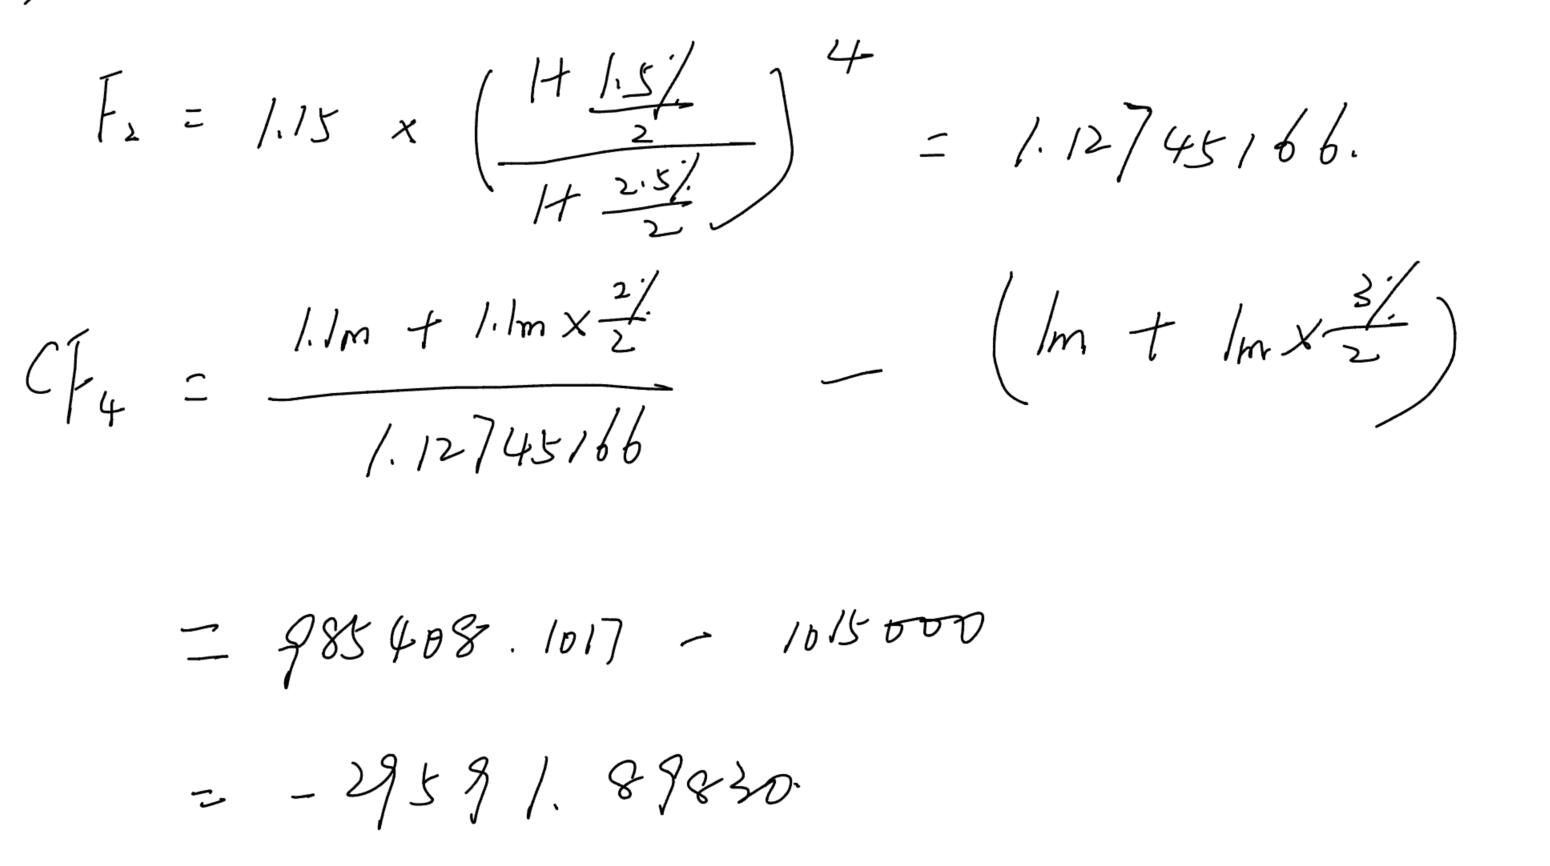 F₂ = 1.15 × ((1+ 1.5%/2)/(1+ 2.5%/2))⁴ = 1.12745166.
CF₄ = (1.1m + 1.1m × 2%/2)/1.12745166 − (1m + 1m × 3%/2)
= 985408.1017 - 1015000
= -29591.89830.